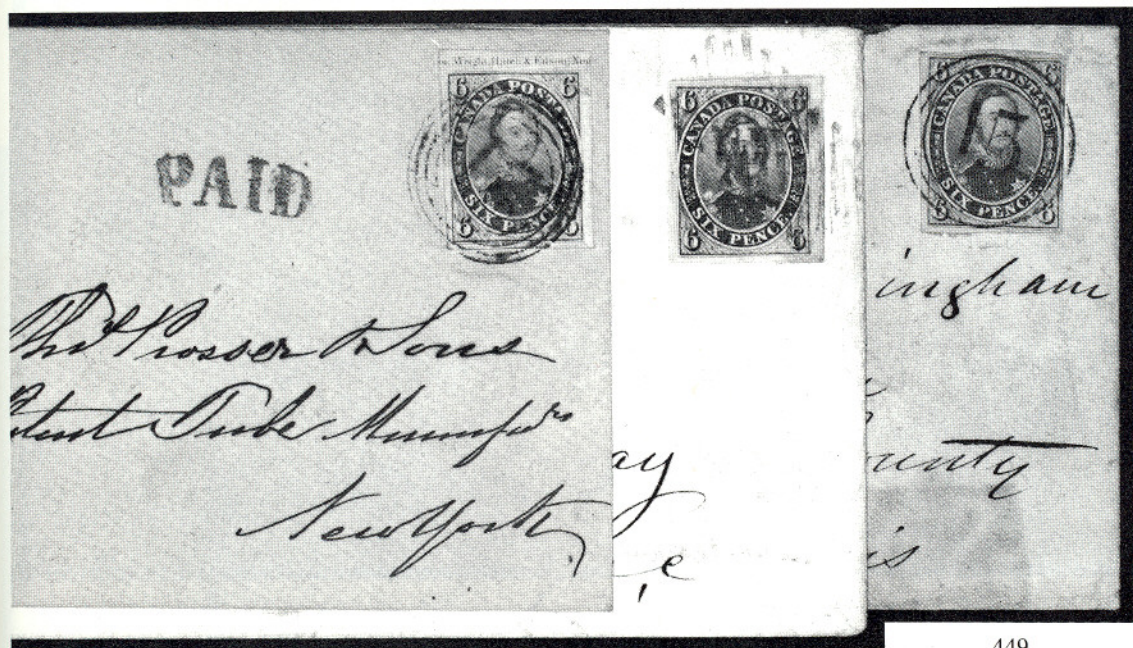 Wright, Hatch & Edson, New
6 6
CANADA POSTAGE
SIX PENCE
6 6
PAID
Thos Prosser & Sons
Patent Tube Manufrs
New York
6 6
CANADA POSTAGE
SIX PENCE
6 6
ay
e
6 6
CANADA POSTAGE
SIX PENCE
6 6
ingham
ounty
is
449